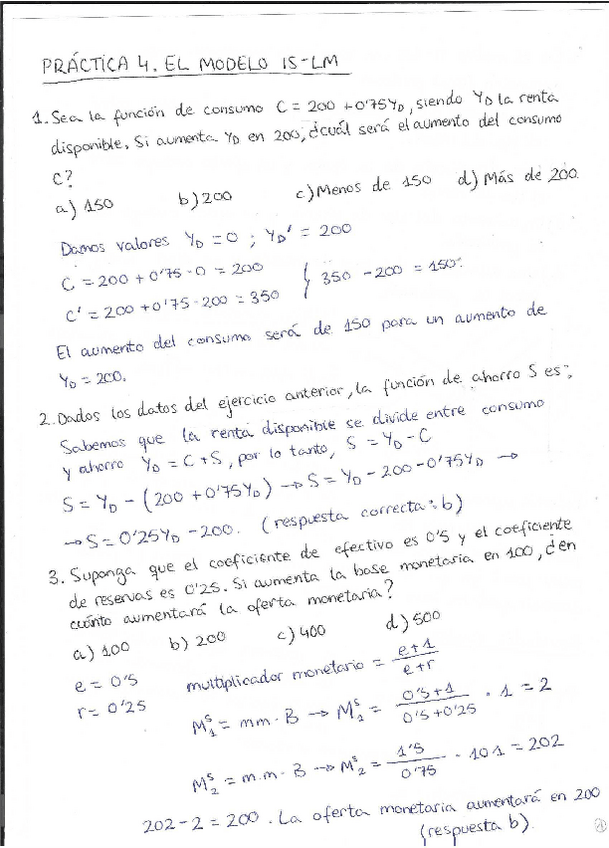 PRÁCTICA 4. EL MODELO IS-LM
1. Sea la función de consumo C = 200 + 0'75Y_D, siendo Y_D la renta
disponible. Si aumenta Y_D en 200, ¿cuál será el aumento del consumo
C?
a) 150 b) 200 c) Menos de 150 d) Más de 200.
Damos valores Y_D = 0 ; Y_D' = 200
C = 200 + 0'75 · 0 = 200
C' = 200 + 0'75 · 200 = 350 } 350 - 200 = 150.
El aumento del consumo será de 150 para un aumento de
Y_D = 200.
2. Dados los datos del ejercicio anterior, la función de ahorro S es:
Sabemos que la renta disponible se divide entre consumo
y ahorro Y_D = C + S, por lo tanto, S = Y_D - C
S = Y_D - (200 + 0'75Y_D) → S = Y_D - 200 - 0'75Y_D →
→ S = 0'25Y_D - 200. (respuesta correcta: b)
3. Suponga que el coeficiente de efectivo es 0'5 y el coeficiente
de reservas es 0'25. Si aumenta la base monetaria en 100, ¿en
cuánto aumentará la oferta monetaria?
a) 100 b) 200 c) 400 d) 500
e = 0'5 multiplicador monetario = e+1 / e+r
r = 0'25
M₁ˢ = mm · B → M₁ˢ = 0'5+1 / 0'5+0'25 · 1 = 2
M₂ˢ = m.m · B → M₂ˢ = 1'5 / 0'75 · 101 = 202
202 - 2 = 200. La oferta monetaria aumentará en 200
(respuesta b).